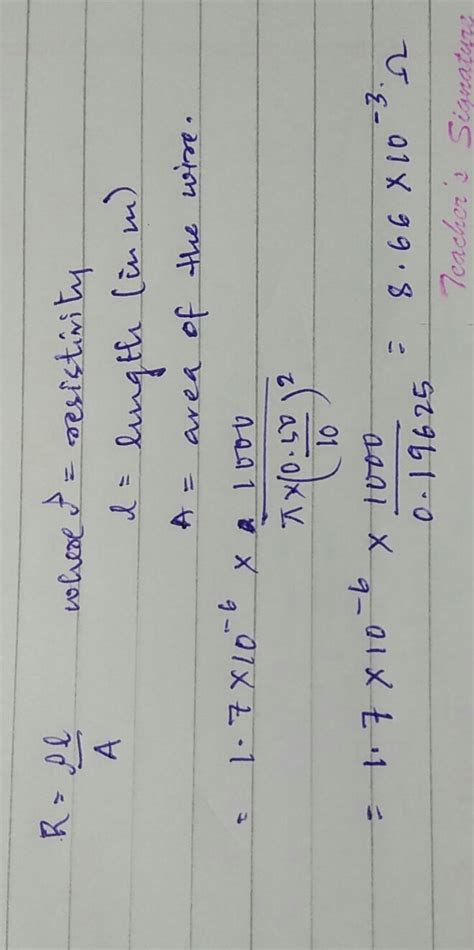 R = ρl/A where ρ = resistivity
l = length (in m)
A = area of the wire.
= 1.7 × 10⁻⁶ × 1000/π×(0.50/10)²
= 1.7 × 10⁻⁶ × 1000/0.19625 = 8.66 × 10⁻³ Ω
Teacher's Signature